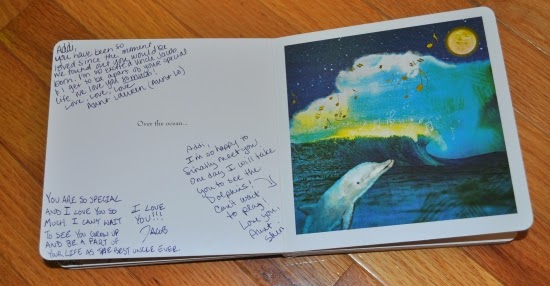 Addi,
you have been so
loved since the moment
we found out you would be
born. I'm so excited uncle Jacob
& I get to be apart of your special
life. We love you
Love, love, love
Aunt Lauren (Aunt Lo)
Over the ocean...
Addi,
I'm so happy to
finally meet you!
One day I will take
you to see the
Dolphins!!
Can't wait
to play!
Love you,
Aunt
YOU ARE SO SPECIAL
AND I LOVE YOU SO
MUCH. I CAN'T WAIT
TO SEE YOU GROW UP
AND BE A PART OF
YOUR LIFE AS THE BEST UNCLE EVER.
I LOVE
YOU!!!
JACOB